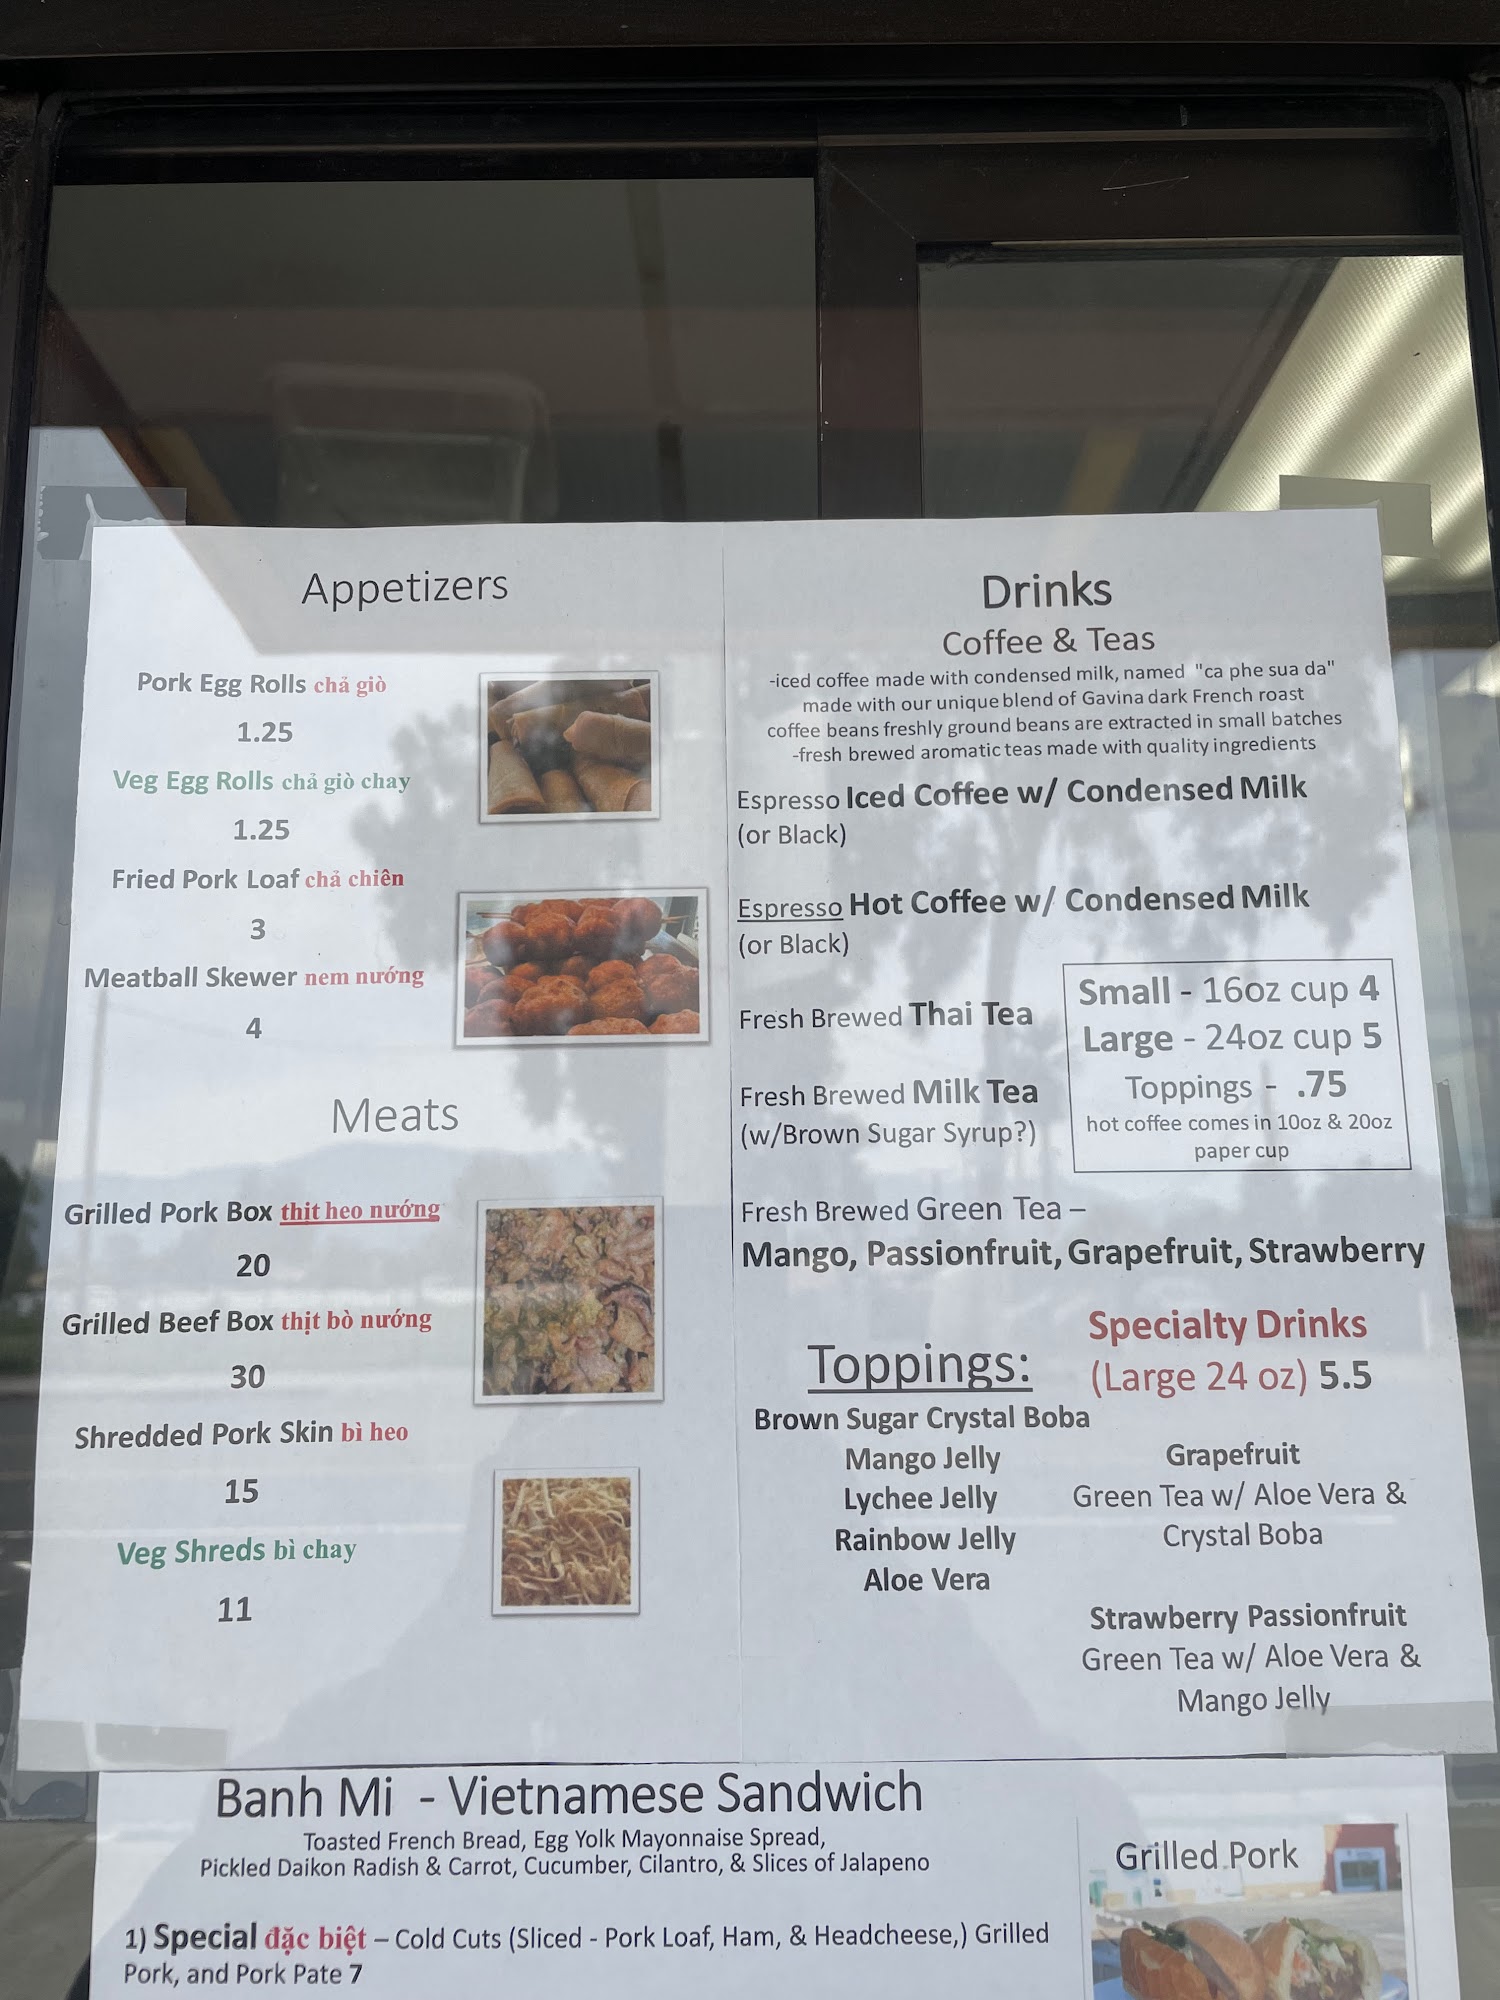 Appetizers
Pork Egg Rolls chả giò
1.25
Veg Egg Rolls chả giò chay
1.25
Fried Pork Loaf chả chiên
3
Meatball Skewer nem nướng
4
Meats
Grilled Pork Box thịt heo nướng
20
Grilled Beef Box thịt bò nướng
30
Shredded Pork Skin bì heo
15
Veg Shreds bì chay
11
Drinks
Coffee & Teas
-iced coffee made with condensed milk, named "ca phe sua da"
made with our unique blend of Gavina dark French roast
coffee beans freshly ground beans are extracted in small batches
-fresh brewed aromatic teas made with quality ingredients
Espresso Iced Coffee w/ Condensed Milk
(or Black)
Espresso Hot Coffee w/ Condensed Milk
(or Black)
Fresh Brewed Thai Tea
Fresh Brewed Milk Tea
(w/Brown Sugar Syrup?)
Small - 16oz cup 4
Large - 24oz cup 5
Toppings - .75
hot coffee comes in 10oz & 20oz
paper cup
Fresh Brewed Green Tea –
Mango, Passionfruit, Grapefruit, Strawberry
Toppings:
Brown Sugar Crystal Boba
Mango Jelly
Lychee Jelly
Rainbow Jelly
Aloe Vera
Specialty Drinks
(Large 24 oz) 5.5
Grapefruit
Green Tea w/ Aloe Vera &
Crystal Boba
Strawberry Passionfruit
Green Tea w/ Aloe Vera &
Mango Jelly
Banh Mi - Vietnamese Sandwich
Toasted French Bread, Egg Yolk Mayonnaise Spread,
Pickled Daikon Radish & Carrot, Cucumber, Cilantro, & Slices of Jalapeno
1) Special đặc biệt – Cold Cuts (Sliced - Pork Loaf, Ham, & Headcheese,) Grilled
Pork, and Pork Pate 7
Grilled Pork